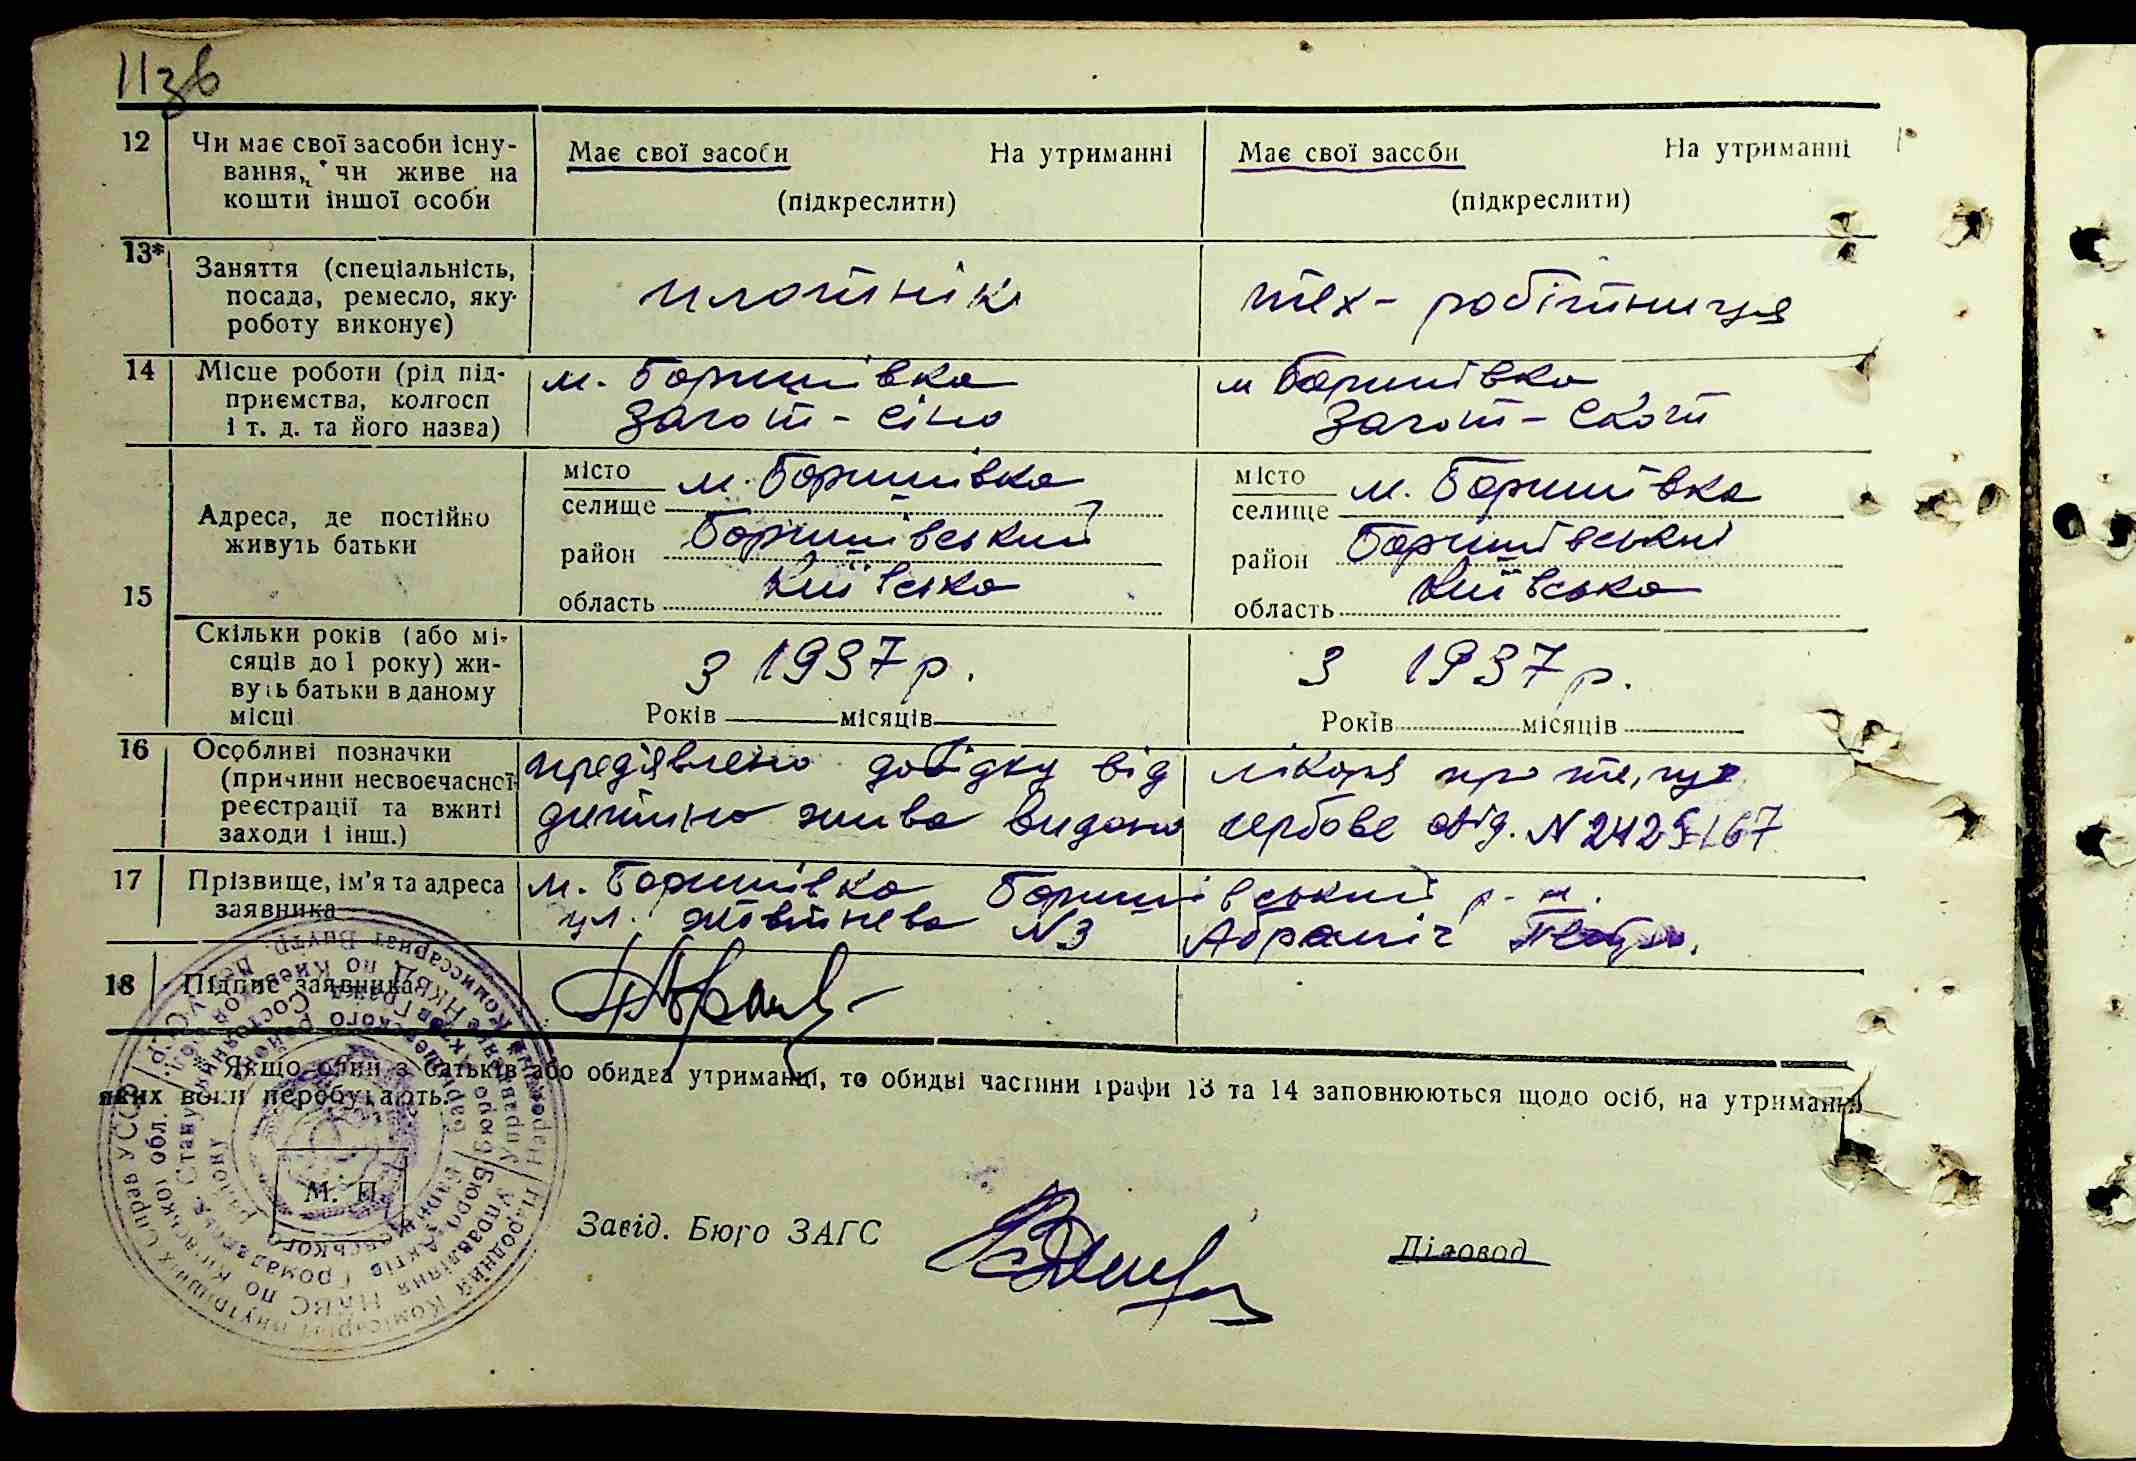 11зв
12 Чи має свої засоби існу-
вання, чи живе на
кошти іншої особи
Має свої засоби На утриманні
(підкреслити)
Має свої засоби На утриманні
(підкреслити)
13* Заняття (спеціальність,
посада, ремесло, яку
роботу виконує)
плотнік
тех-робітниця
14 Місце роботи (рід під-
приємства, колгосп
і т. д. та його назва)
м. Боришівка
Загот-сіно
м Боришівка
Загот-Скот
15 Адреса, де постійно
живуть батьки
місто
селище м. Боришівка
район Боришівський
область Київська
місто
селище м. Боришівка
район Боришівський
область Київська
Скільки років (або мі-
сяців до 1 року) жи-
вуть батьки в даному
місці
з 1937 р.
Років місяців
з 1937 р.
Років місяців
16 Особливі позначки
(причини несвоєчасної
реєстрації та вжиті
заходи і інш.)
предявлено довідку від лікаря про те, що
дитина жива видано гербове свід. N
17 Прізвище, ім'я та адреса
заявника
м. Боришівка Боришівський р-н.
ул. Жовтнева N3 Абраміч
18 Підпис заявника
Якщо один з батьків або обидва утриманці, то обидві частини графи 13 та 14 заповнюються щодо осіб, на утриманні
яких вони перебувають.
М. П.
Завід. Бюро ЗАГС
Діловод